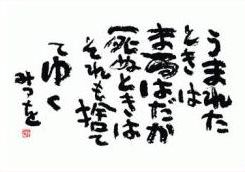 うまれた
ときは
まるはだか
死ぬときは
それも捨て
てゆく
みつを